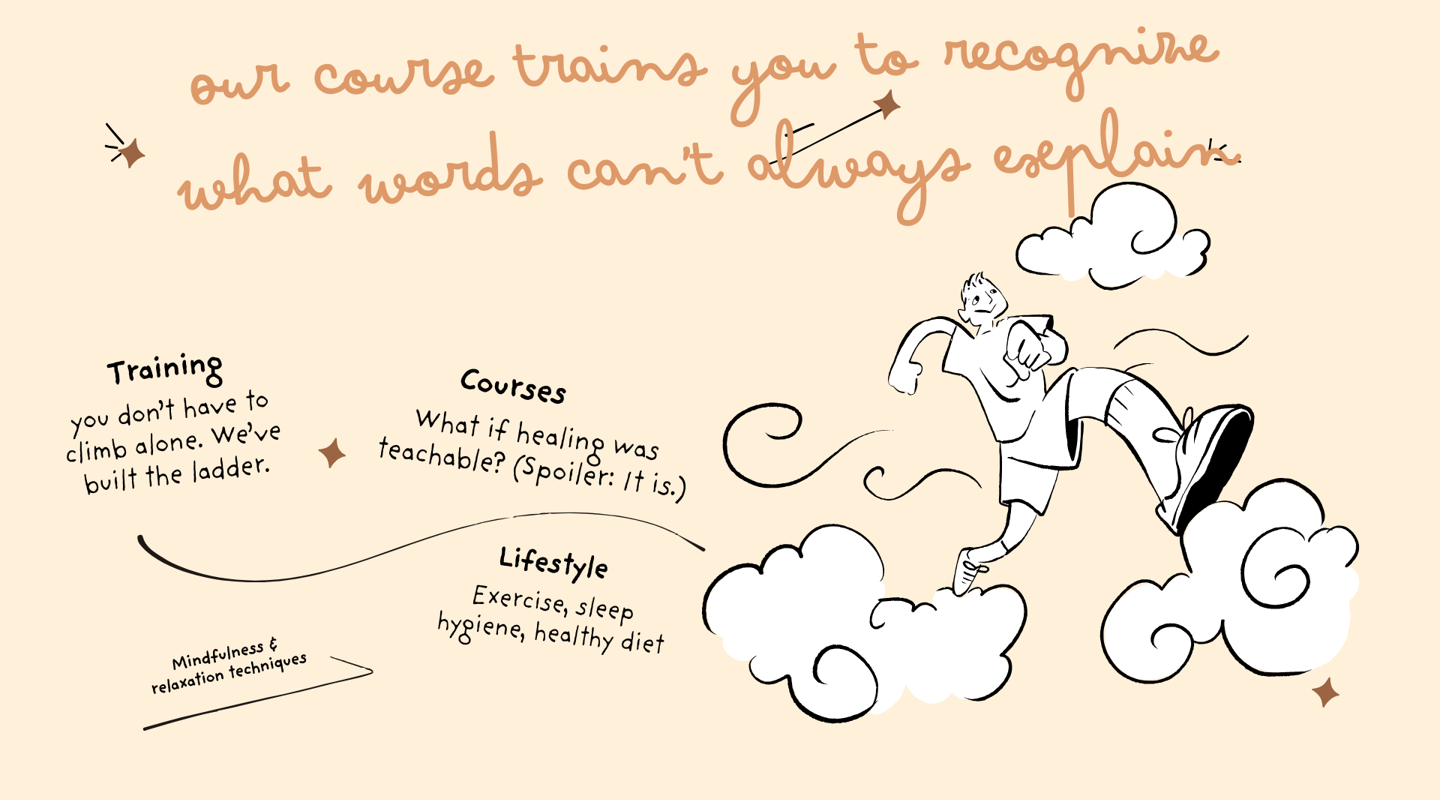 our course trains you to recognize
what words can't always explain
Training
you don't have to
climb alone. We've
built the ladder.
Courses
What if healing was
teachable? (Spoiler: It is.)
Lifestyle
Exercise, sleep
hygiene, healthy diet
Mindfulness &
relaxation techniques